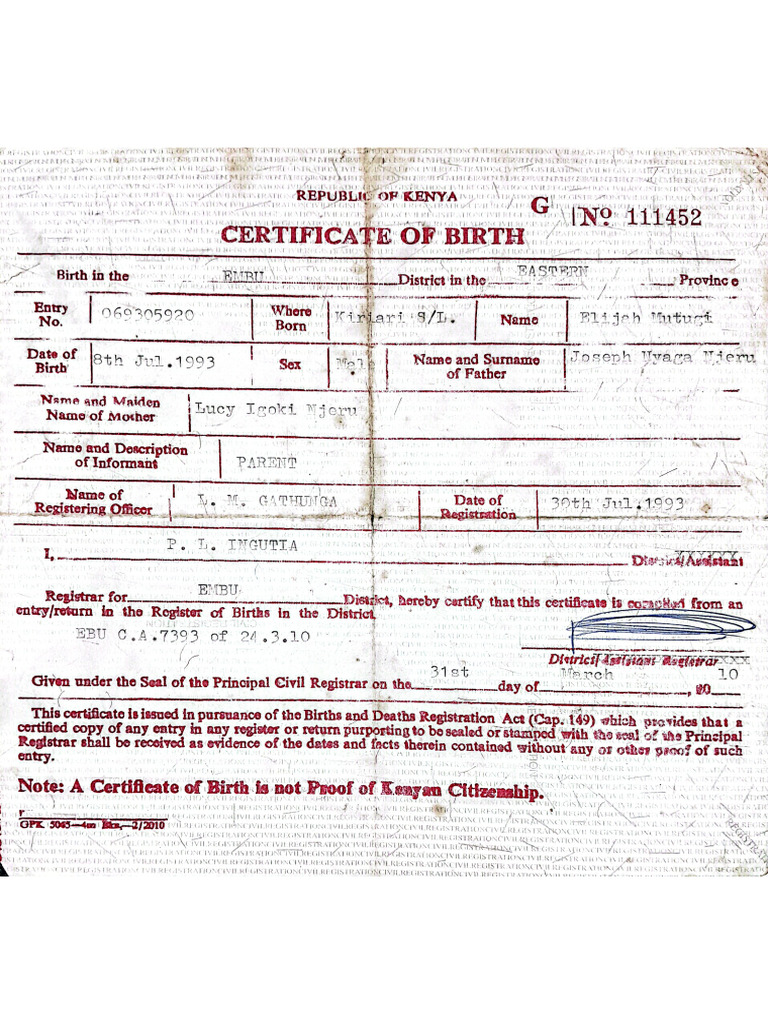 REPUBLIC OF KENYA
G No 111452
CERTIFICATE OF BIRTH
Birth in the EMBU District in the EASTERN Province
Entry No. 069305920 Where Born Kiriari S/L. Name Elijah Mutugi
Date of Birth 8th Jul.1993 Sex Male Name and Surname of Father Joseph Nyaga Njeru
Name and Maiden Name of Mother Lucy Igoki Njeru
Name and Description of Informant PARENT
Name of Registering Officer L. M. GATHUNGA Date of Registration 30th Jul.1993
I, P. L. INGUTIA District/Assistant
Registrar for EMBU District, hereby certify that this certificate is compiled from an
entry/return in the Register of Births in the District.
EBU C.A.7393 of 24.3.10
District/Assistant Registrar
Given under the Seal of the Principal Civil Registrar on the 31st day of March, 2010
This certificate is issued in pursuance of the Births and Deaths Registration Act (Cap. 149) which provides that a
certified copy of any entry in any register or return purporting to be sealed or stamped with the seal of the Principal
Registrar shall be received as evidence of the dates and facts therein contained without any or other proof of such
entry.
Note: A Certificate of Birth is not Proof of Kenyan Citizenship.
GPK 5045—4m Bks.—2/2010